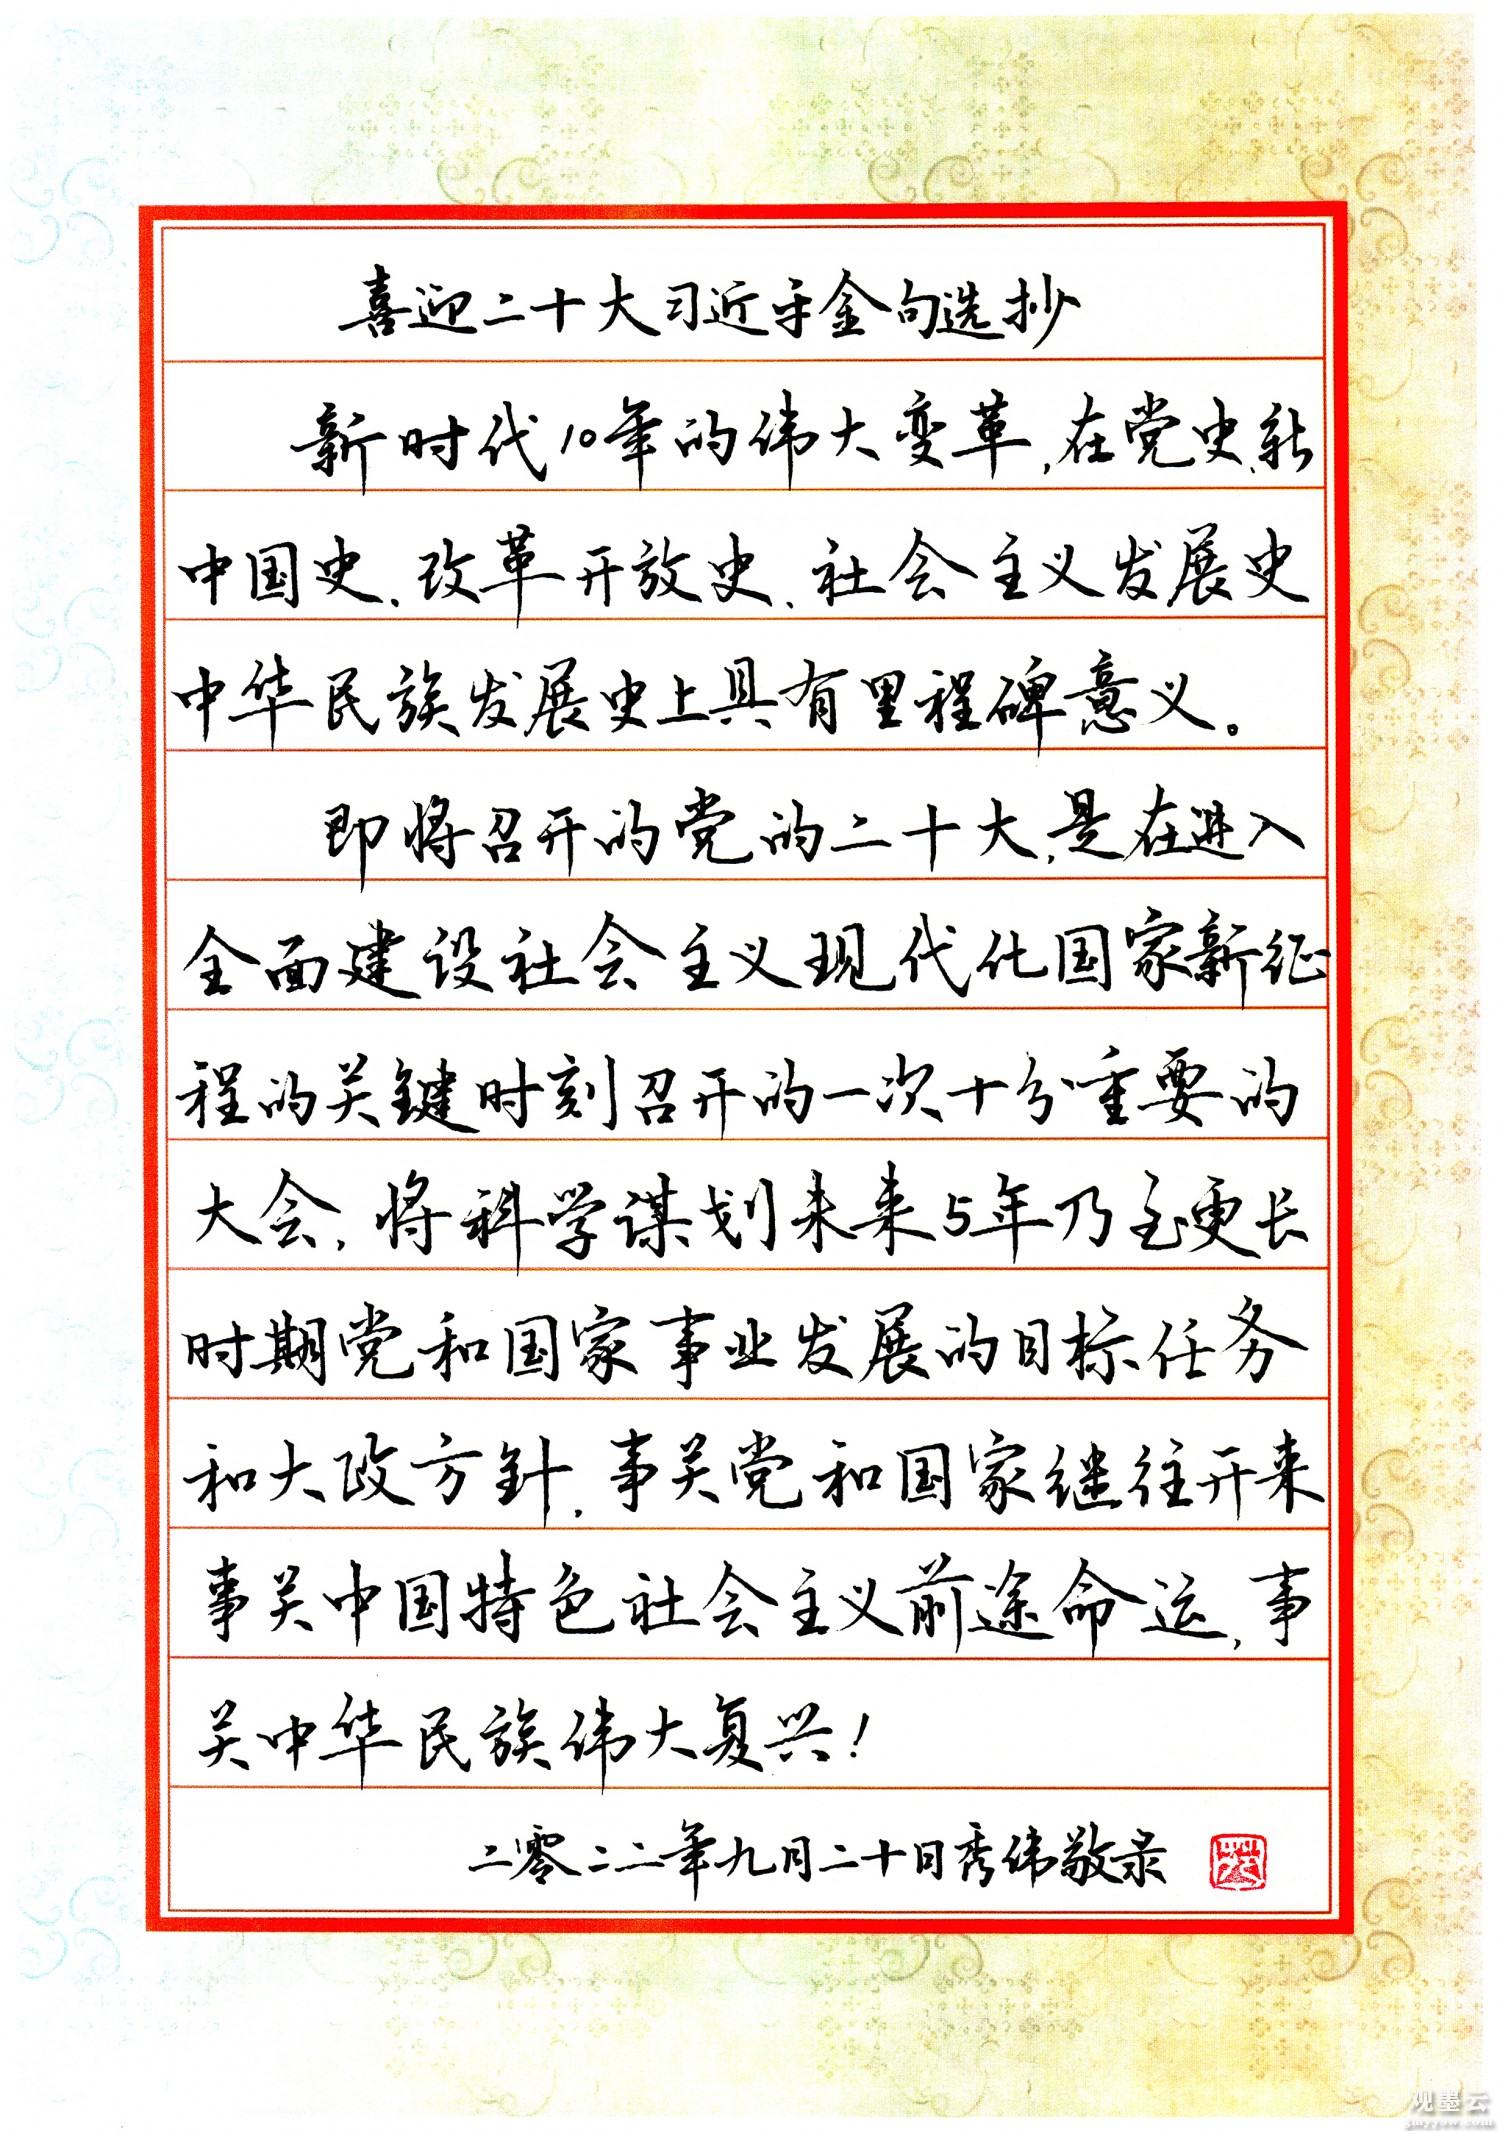 喜迎二十大习近平金句选抄
新时代10年的伟大变革,在党史、新
中国史、改革开放史、社会主义发展史
中华民族发展史上具有里程碑意义。
即将召开的党的二十大,是在进入
全面建设社会主义现代化国家新征
程的关键时刻召开的一次十分重要的
大会,将科学谋划未来5年乃至更长
时期党和国家事业发展的目标任务
和大政方針,事关党和国家继往开来
事关中国特色社会主义前途命运,事
关中华民族伟大复兴!
二零二二年九月二十日秀伟敬录
观墨云